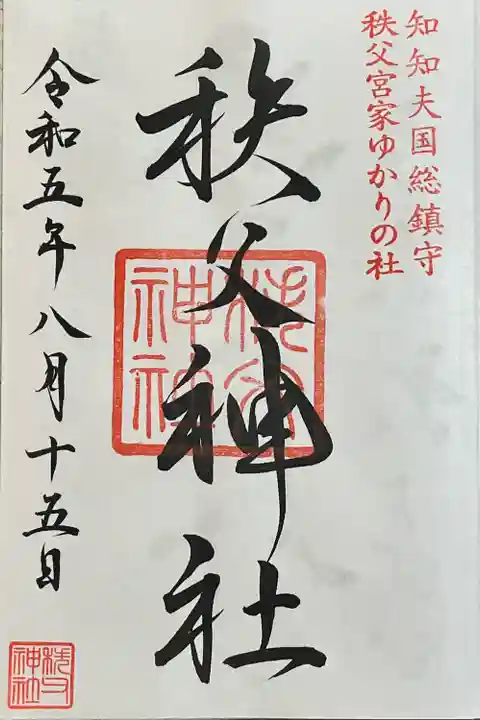 知知夫国総鎮守
秩父宮家ゆかりの社
秩父神社
秩父神社
令和五年八月十五日
秩父神社